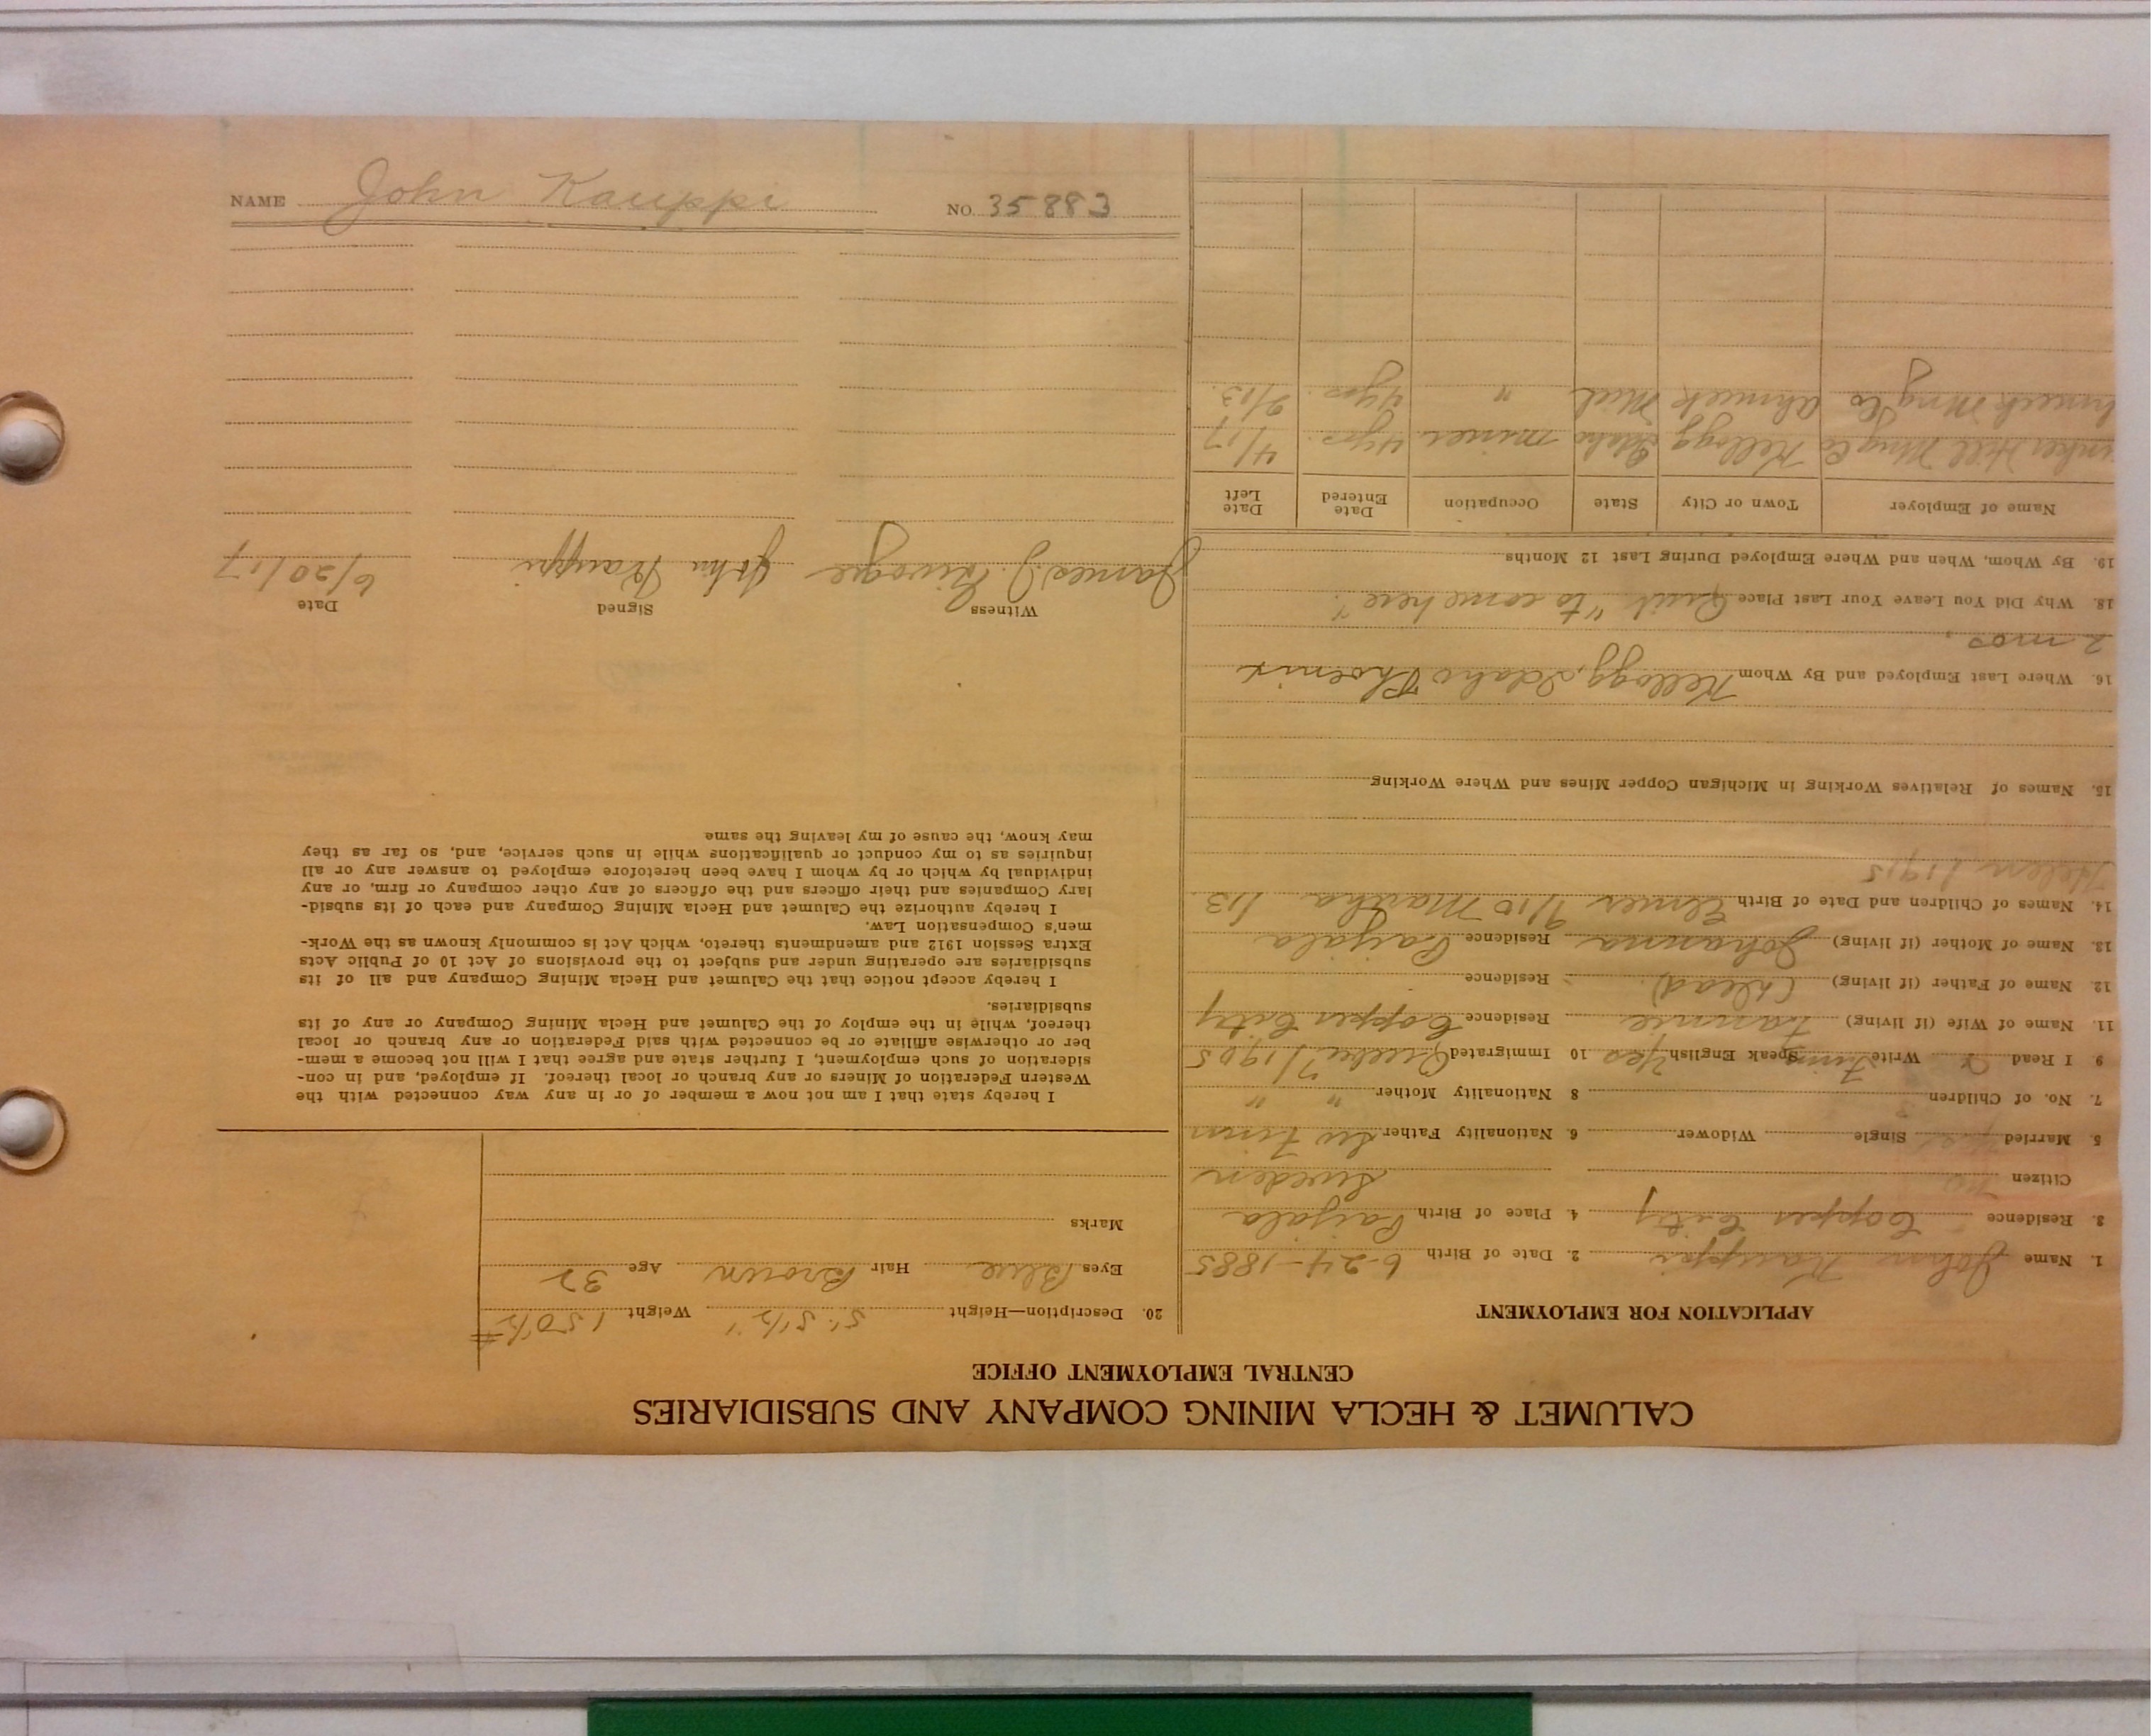 CALUMET & HECLA MINING COMPANY AND SUBSIDIARIES
CENTRAL EMPLOYMENT OFFICE
APPLICATION FOR EMPLOYMENT
1. Name John Kauppi 2. Date of Birth 6-24-1885
3. Residence Copper City 4. Place of Birth Pajala
Citizen no Sweden
5. Married yes Single Widower 6. Nationality Father Sw Finn
7. No. of Children 8 Nationality Mother " "
9 I Read Write Finn Speak English Yes 10 Immigrated 7/1905
11. Name of Wife (if living) Fannie Residence Copper City
12. Name of Father (if living) (dead) Residence
13. Name of Mother (if living) Johanna Residence Pajala
14. Names of Children and Date of Birth Elmer 9/10 Martha 1/13
Helen 1/1915
15. Names of Relatives Working in Michigan Copper Mines and Where Working
16. Where Last Employed and By Whom Kellogg, Idaho Phoenix
2 mos.
18. Why Did You Leave Your Last Place Quit "to come here".
19. By Whom, When and Where Employed During Last 12 Months
Name of Employer Town or City State Occupation Date Entered Date Left
unker Hill Mng Co Kellogg Idaho miner 4 yrs. 4/17
hmeek Mng Co Ahmeek Mich " 4 yrs. 9/13
20. Description—Height 5' 5 1/2" Weight 150 1/2 #
Eyes Blue Hair Brown Age 32
Marks
I hereby state that I am not now a member of or in any way connected with the
Western Federation of Miners or any branch or local thereof. If employed, and in con-
sideration of such employment, I further state and agree that I will not become a mem-
ber or otherwise affiliate or be connected with said Federation or any branch or local
thereof, while in the employ of the Calumet and Hecla Mining Company or any of its
subsidiaries.
I hereby accept notice that the Calumet and Hecla Mining Company and all of its
subsidiaries are operating under and subject to the provisions of Act 10 of Public Acts
Extra Session 1912 and amendments thereto, which Act is commonly known as the Work-
men's Compensation Law.
I hereby authorize the Calumet and Hecla Mining Company and each of its subsid-
iary Companies and their officers and the officers of any other company or firm, or any
individual by which or by whom I have been heretofore employed to answer any or all
inquiries as to my conduct or qualifications while in such service, and, so far as they
may know, the cause of my leaving the same
Witness Signed Date
James J. John Kauppi 6/20/17
NAME John Kauppi NO. 35883